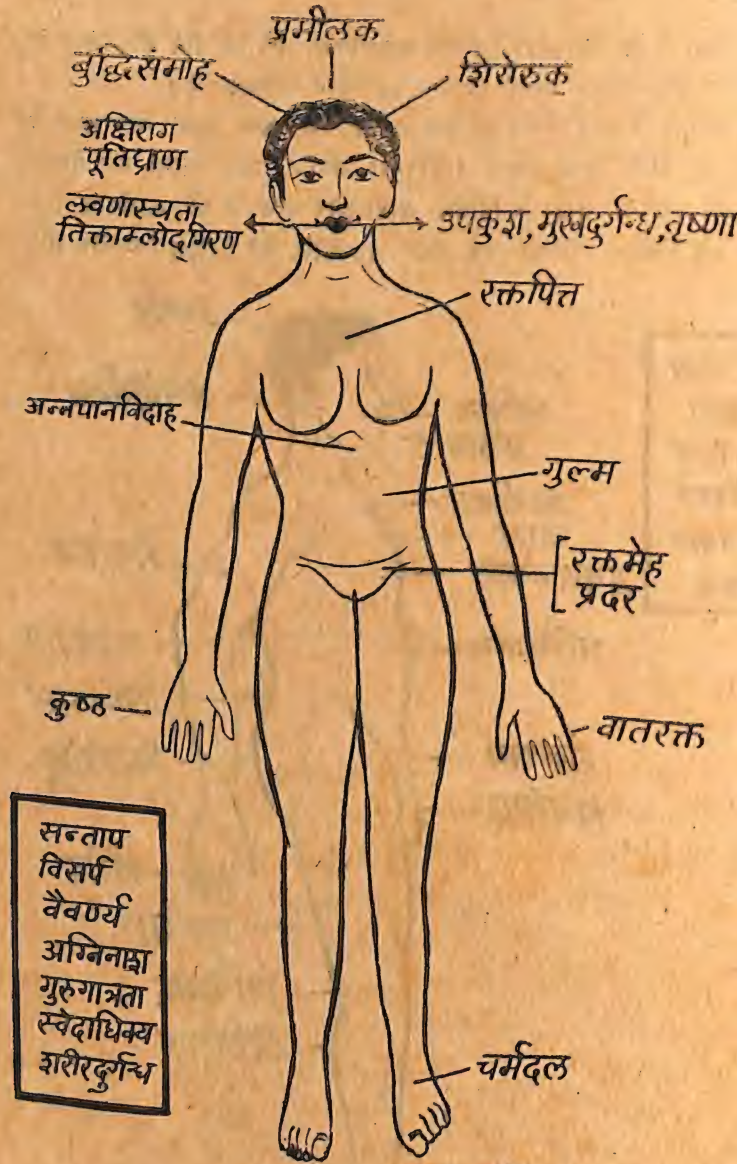 प्रमीलक
बुद्धिसंमोह
शिरोरुक
अक्षिराग
पूतिघ्राण
लवणास्यता
तिक्ताम्लोद्गिरण
उपकुश, मुखदुर्गन्ध, तृष्णा
रक्तपित्त
अन्नपानविदाह
गुल्म
रक्तमेह
प्रदर
कुष्ठ
वातरक्त
सन्ताप
विसर्प
वैवर्ण्य
अग्निनाश
गुरुगात्रता
स्वेदाधिक्य
शरीरदुर्गन्ध
चर्मदल